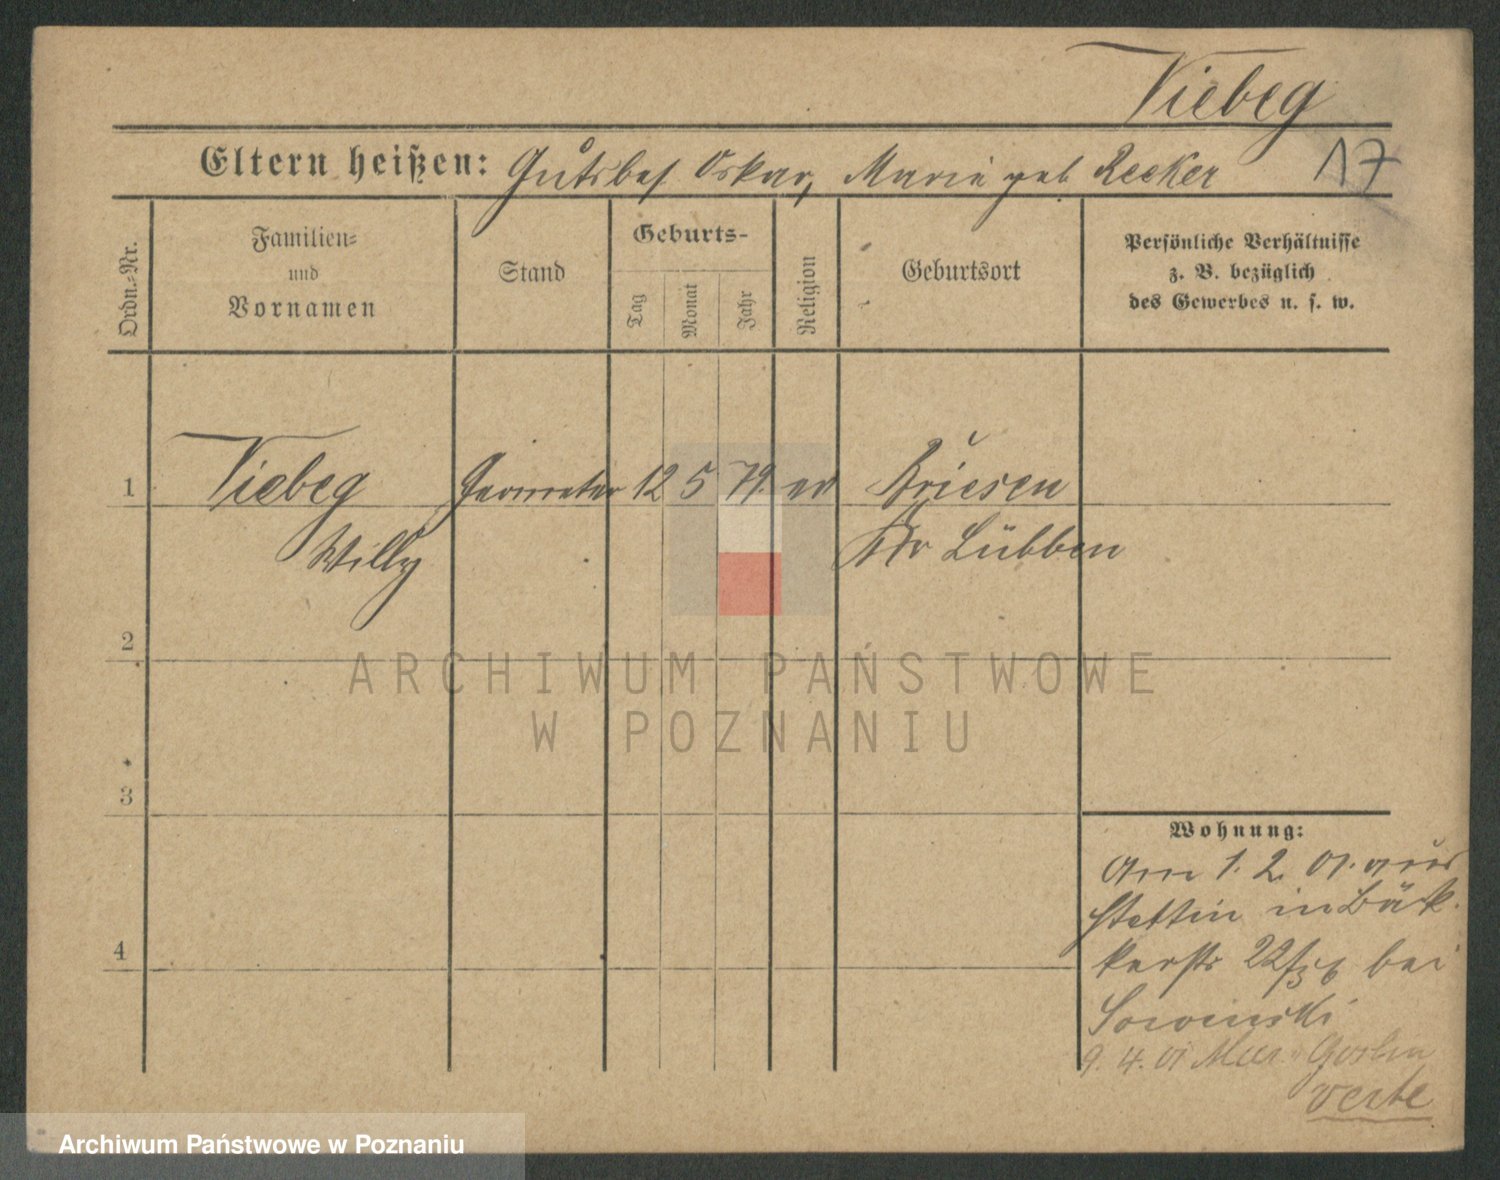 Viebeg
Eltern heißen: Gutsbes Oskar, Marie geb Recker
17
Ordn.=Nr.
Familien=
und
Vornamen
Stand
Geburts-
Tag
Monat
Jahr
Religion
Geburtsort
Persönliche Verhältnisse
z. B. bezüglich
des Gewerbes u. s. w.
1 Viebeg Geometer 12 5 79. ev Briesen
Willy Kr Lübben
2
ARCHIWUM PAŃSTWOWE
W POZNANIU
3
Wohnung:
Am 1. 2. 01. aus
Stettin in Bäk
4
kerstr 22 bei
Sowinski
9. 4. 01 Mur. Goslin
verte
Archiwum Państwowe w Poznaniu